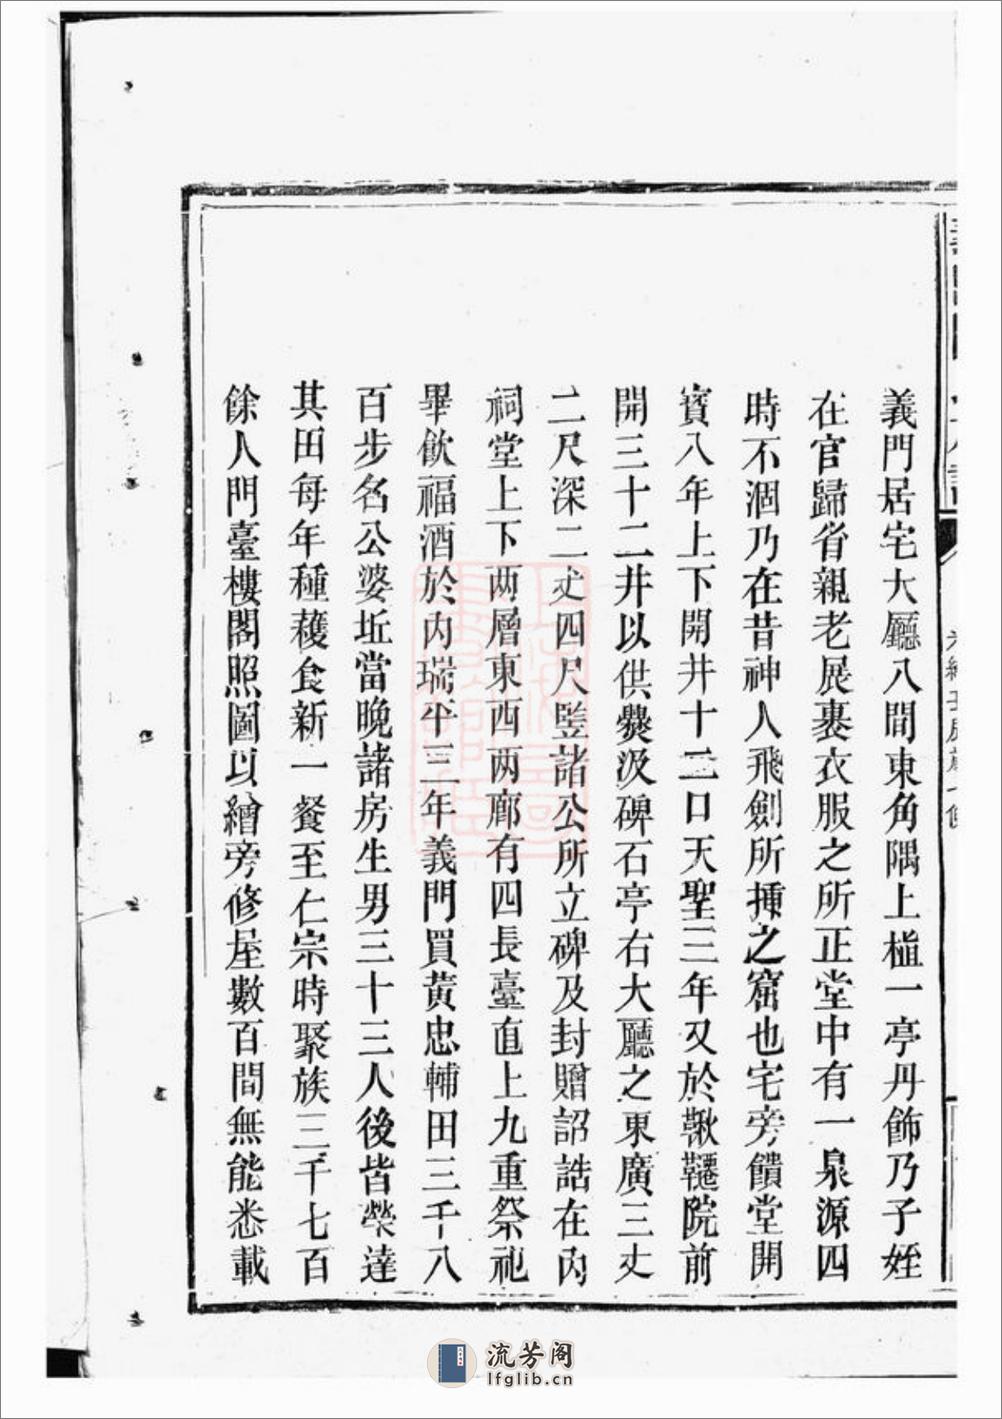 義門居宅大廳八間東角隅上植一亭丹飾乃子姪
在官歸省親老展裹衣服之所正堂中有一泉源四
時不涸乃在昔神人飛劍所揷之窟也宅旁饋堂開
寶八年上下開井十二口天聖三年又於鞦韆院前
開三十二井以供爨汲碑石亭右大廳之東廣三丈
二尺深二丈四尺竪諸公所立碑及封贈詔誥在內
祠堂上下两層東西两廊有四長臺直上九重祭祀
畢飲福酒於內瑞平三年義門買黃忠輔田三千八
百步名公婆坵當晚諸房生男三十三人後皆榮達
其田每年種穫食新一餐至仁宗時聚族三千七百
餘人門臺樓閣照圖以繪旁修屋數百間無能悉載
流芳阁
lfglib.cn